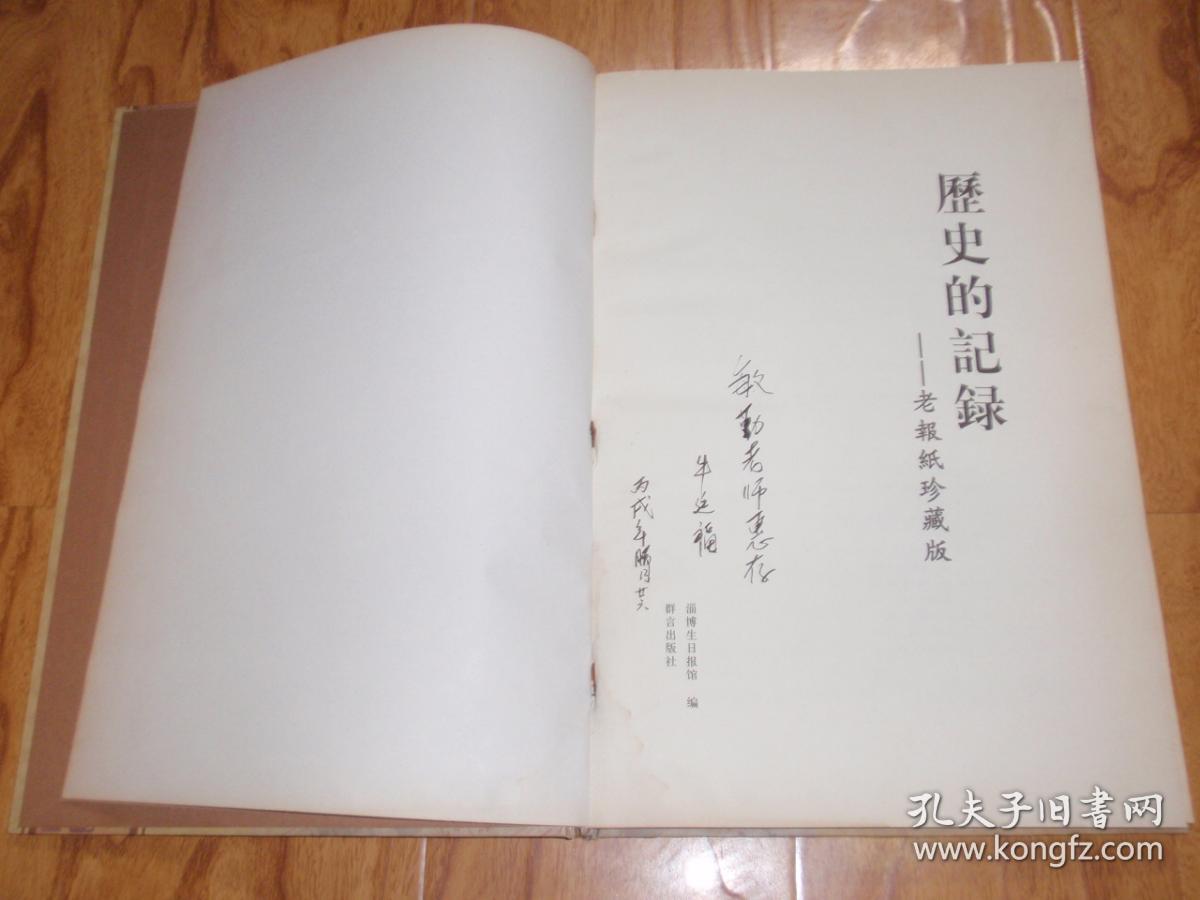 歷史的記録
——老報紙珍藏版
敏勤老师惠存
牛廷福
丙戌年腊月廿六
淄博生日报馆 编
群言出版社
孔夫子旧书网
www.kongfz.com